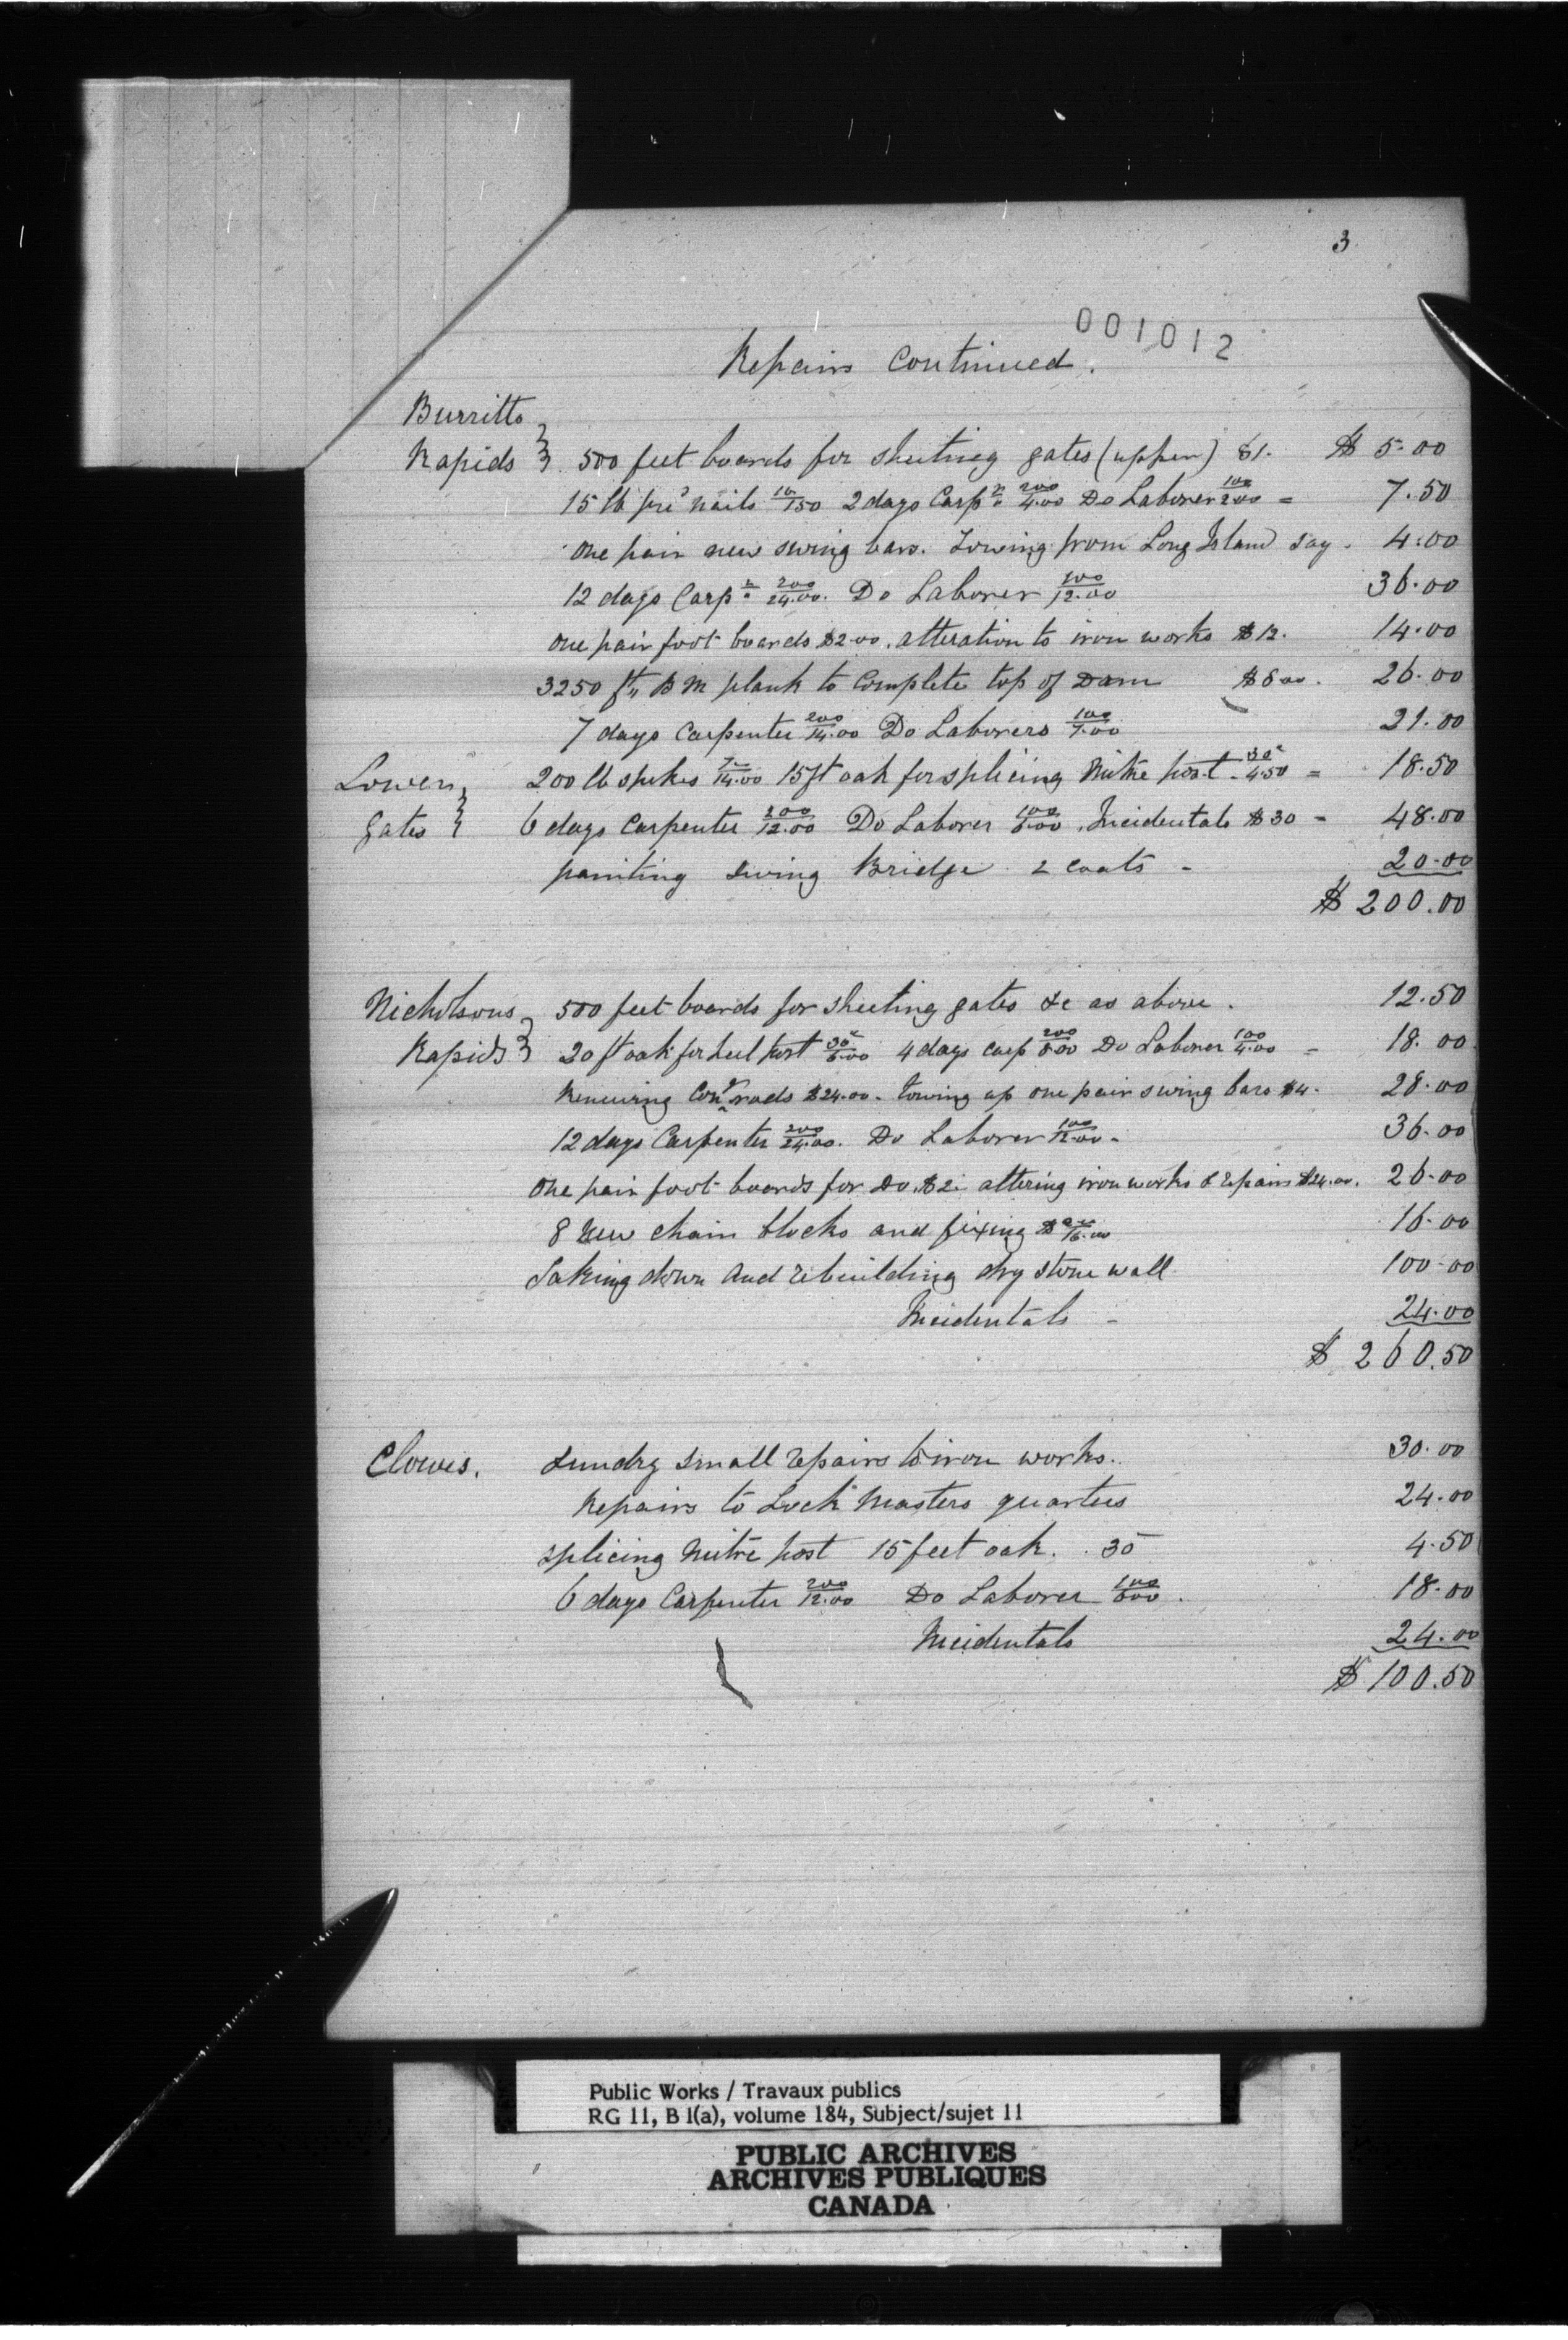 3
001012
Repairs Continued.
Burritts
Rapids } 500 feet boards for sheeting gates (upper) $1. $ 5.00
15 lb prd nails 10/150 2 days Carpr 200/4.00 Do Laborer 100/2.00 = 7.50
One pair new swing bars. Towing from Long Island say. 4.00
12 days Carpr 200/24.00. Do Laborer 100/12.00 36.00
One pair foot boards $2.00. alteration to iron works $12. 14.00
3250 ft,, B M plank to Complete top of Dam $8.00. 26.00
7 days Carpenter 200/14.00 Do Laborers 100/7.00 21.00
Lower 200 lb spikes 7c/14.00 15 ft oak for splicing Mitre post. 30c/4.50 = 18.50
gates } 6 days Carpenter 200/12.00 Do Laborer 100/6.00. Incidentals $30 = 48.00
painting swing Bridge 2 coats - 20.00
$ 200.00
Nicholsons 500 feet boards for sheeting gates &c as above. 12.50
Rapids } 20 ft oak for heel post 30c/6.00 4 days carp 200/8.00 Do Laborer 100/4.00 = 18.00
Renewing Conr rods $24.00. towing up one pair swing bars $4. 28.00
12 days Carpenter 200/24.00. Do Laborer 100/12.00. 36.00
One pair foot boards for Do. $2. altering iron works & repairs $24.00. 26.00
8 New chain blocks and fixing $ 200/16.00 16.00
Taking down and rebuilding dry stone wall 100.00
Incidentals - 24.00
$ 260.50
Clowes. Sundry small repairs to iron works. 30.00
Repairs to Lock Masters quarters 24.00
splicing Mitre post 15 feet oak. 30 4.50
6 days Carpenter 200/12.00 Do Laborer 100/600. 18.00
Incidentals 24.00
$ 100.50
Public Works / Travaux publics
RG 11, B 1(a), volume 184, Subject/sujet 11
PUBLIC ARCHIVES
ARCHIVES PUBLIQUES
CANADA